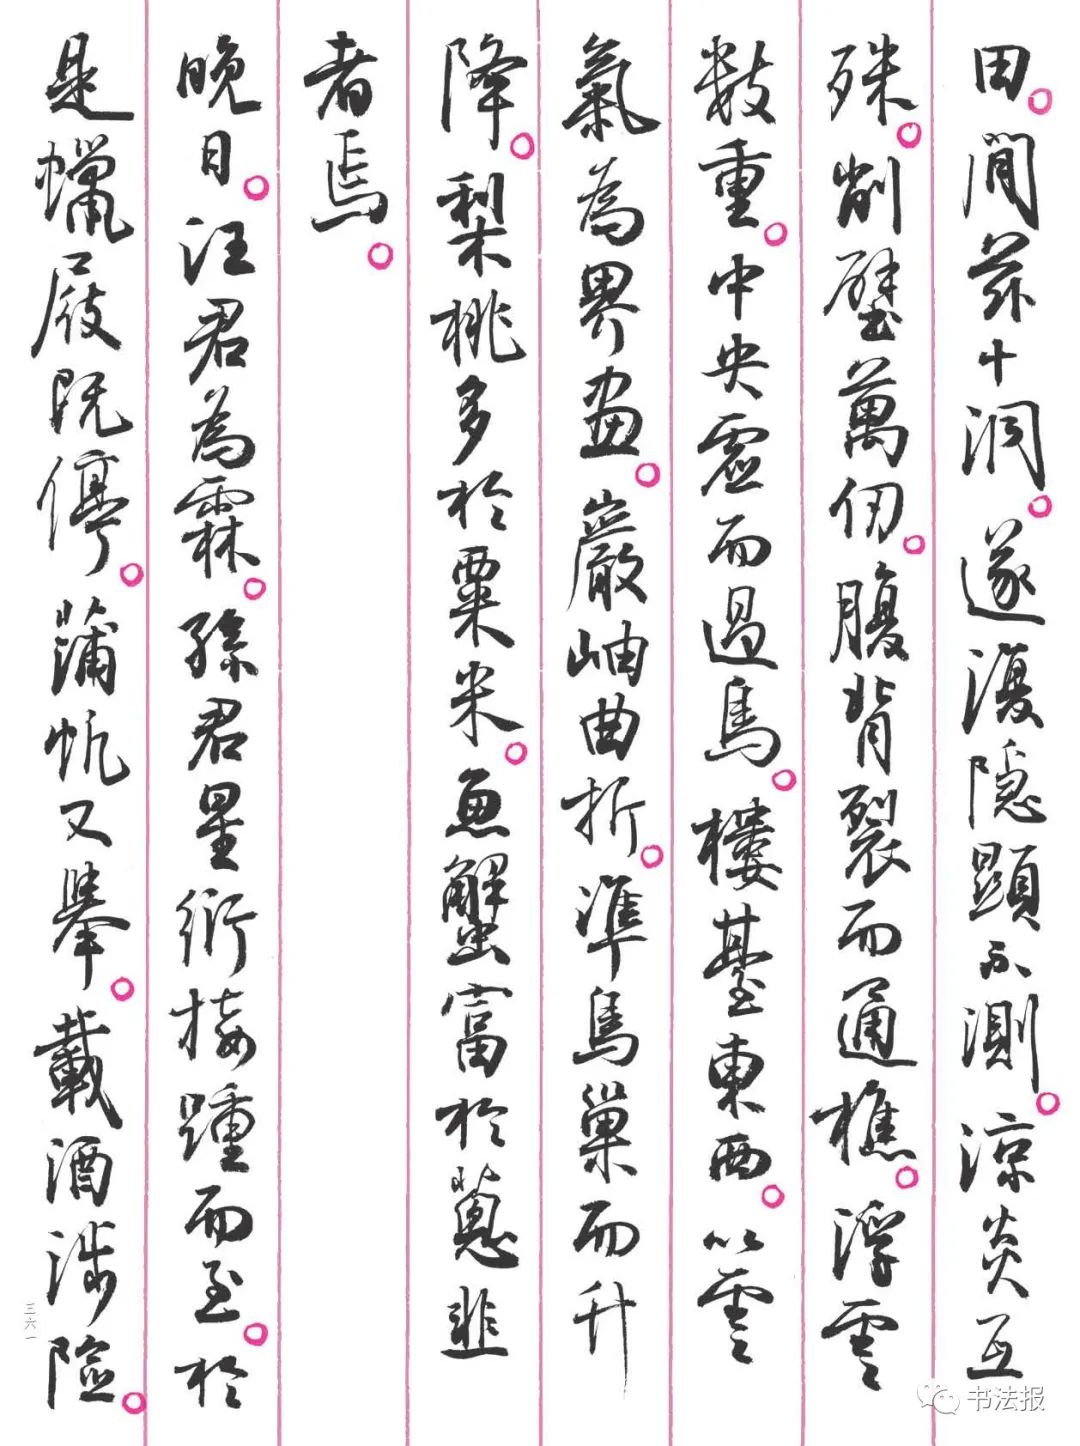 田。間茲十洞。遂復隱顯不測。涼炎互
殊。削壁萬仞。腹背裂而通樵。浮雲
數重。中央虛而過鳥。樓臺東西。以雲
氣為界畫。巖岫曲折。準鳥巢而升
降。梨桃多於粟米。魚蟹富於蔥韭
者焉。
晚日。汪君為霖。孫君星衍接踵而至。於
是蠟屐既停。蒲帆又舉。載酒涉險。
三六一
书法报